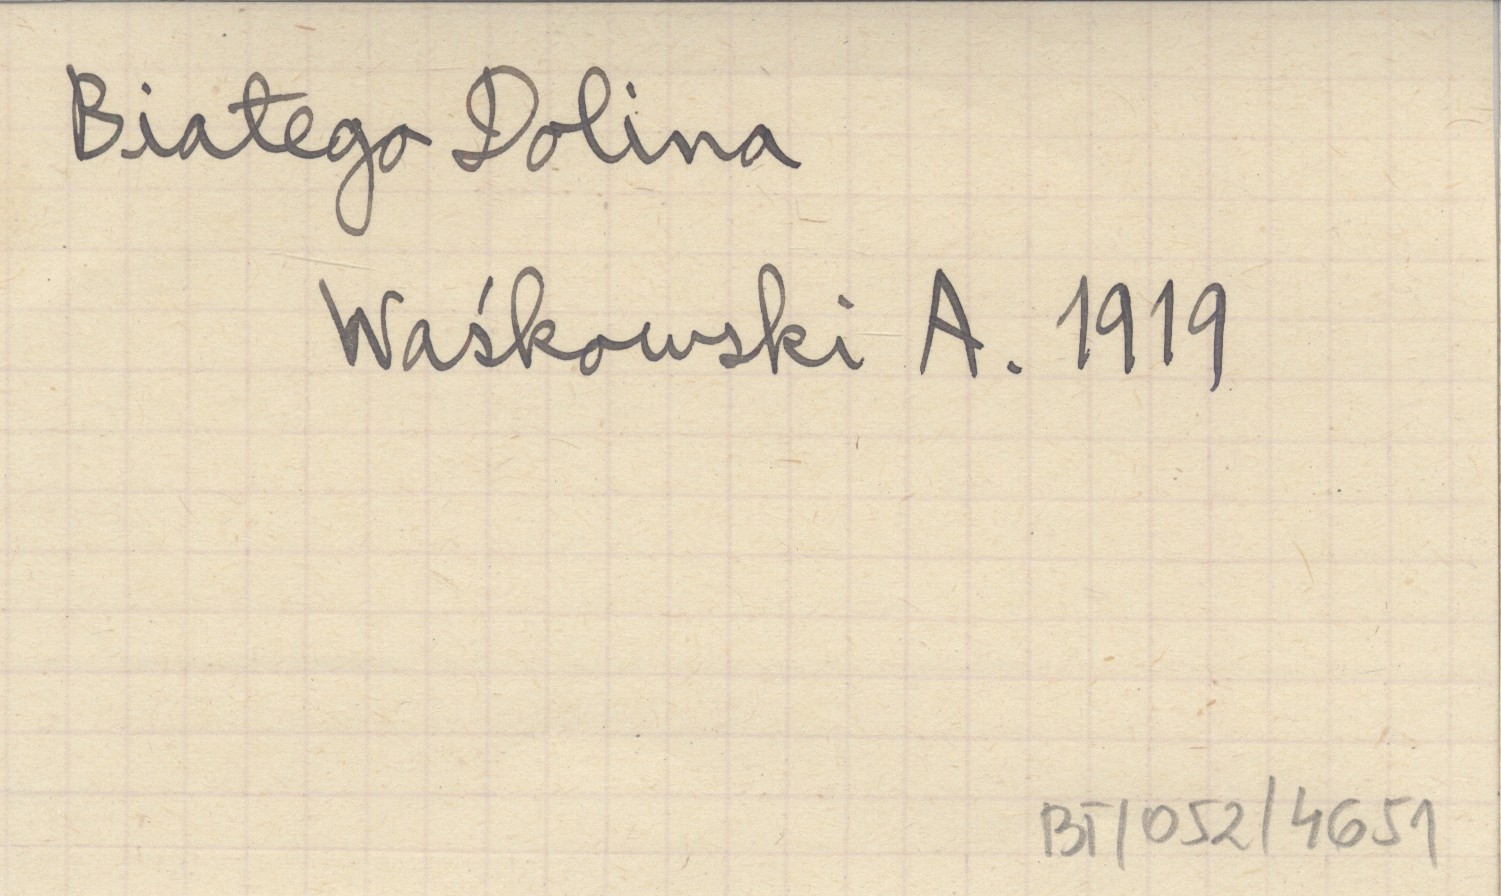 Białego Dolina
Waśkowski A. 1919
BT/052/4651